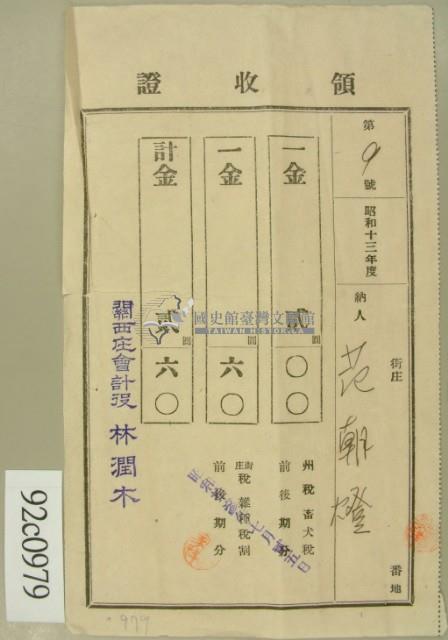 領收證
第9號
昭和十三年度
納人
街庄
范朝燈
番地
一金
貳圓
〇〇
州稅畜犬稅
前後期分
一金
圓
六〇
街庄稅雜種稅割
前後期分
計金
貳圓
六〇
關西庄會計役 林潤木
國史館臺灣文獻館
TAIWAN HISTORICA
92c0979
979